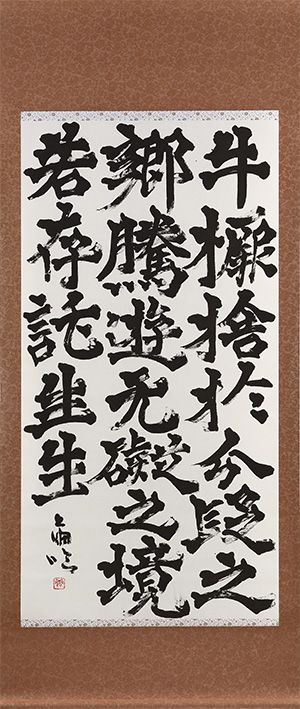 牛橛捨於分段之
鄉騰遊无礙之境
若存託生生